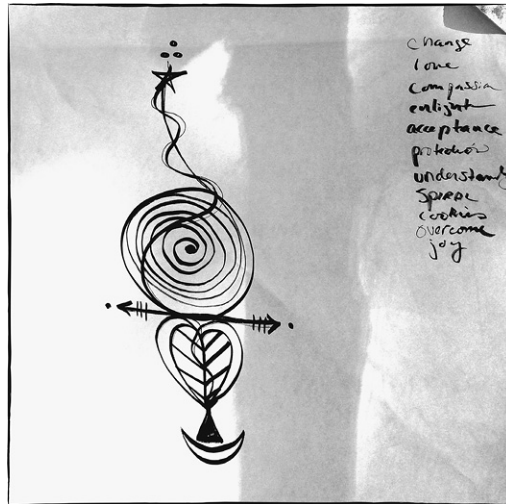 change
love
compassion
enlight
acceptance
protection
understand
spiral
cookies
overcome
joy